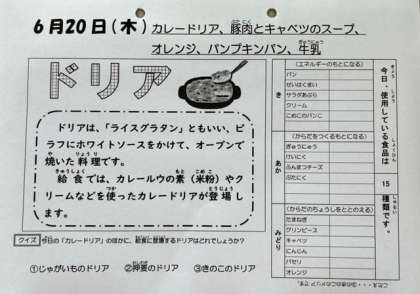 6月20日(木) カレードリア、豚肉とキャベツのスープ、
オレンジ、パンプキンパン、牛乳
ドリア
ドリアは、「ライスグラタン」ともいい、ピ
ラフにホワイトソースをかけて、オーブンで
焼いた料理です。
給食では、カレールウの素(米粉)やク
リームなどを使ったカレードリアが登場し
ます。
クイズ 今日の「カレードリア」のほかに、給食に登場するドリアはどれでしょうか?
①じゃがいものドリア ②押麦のドリア ③きのこのドリア
今日、使用している食品は
15
種類です。
き
(エネルギーのもとになる)
パン
せいはくまい
サラダあぶら
クリーム
こめこのパンこ
あか
(からだをつくるもとになる)
ぎゅうにゅう
けいにく
ふんまつチーズ
ぶたにく
みどり
(からだのちょうしをととのえる)
たまねぎ
グリンピース
キャベツ
にんじん
パセリ
オレンジ